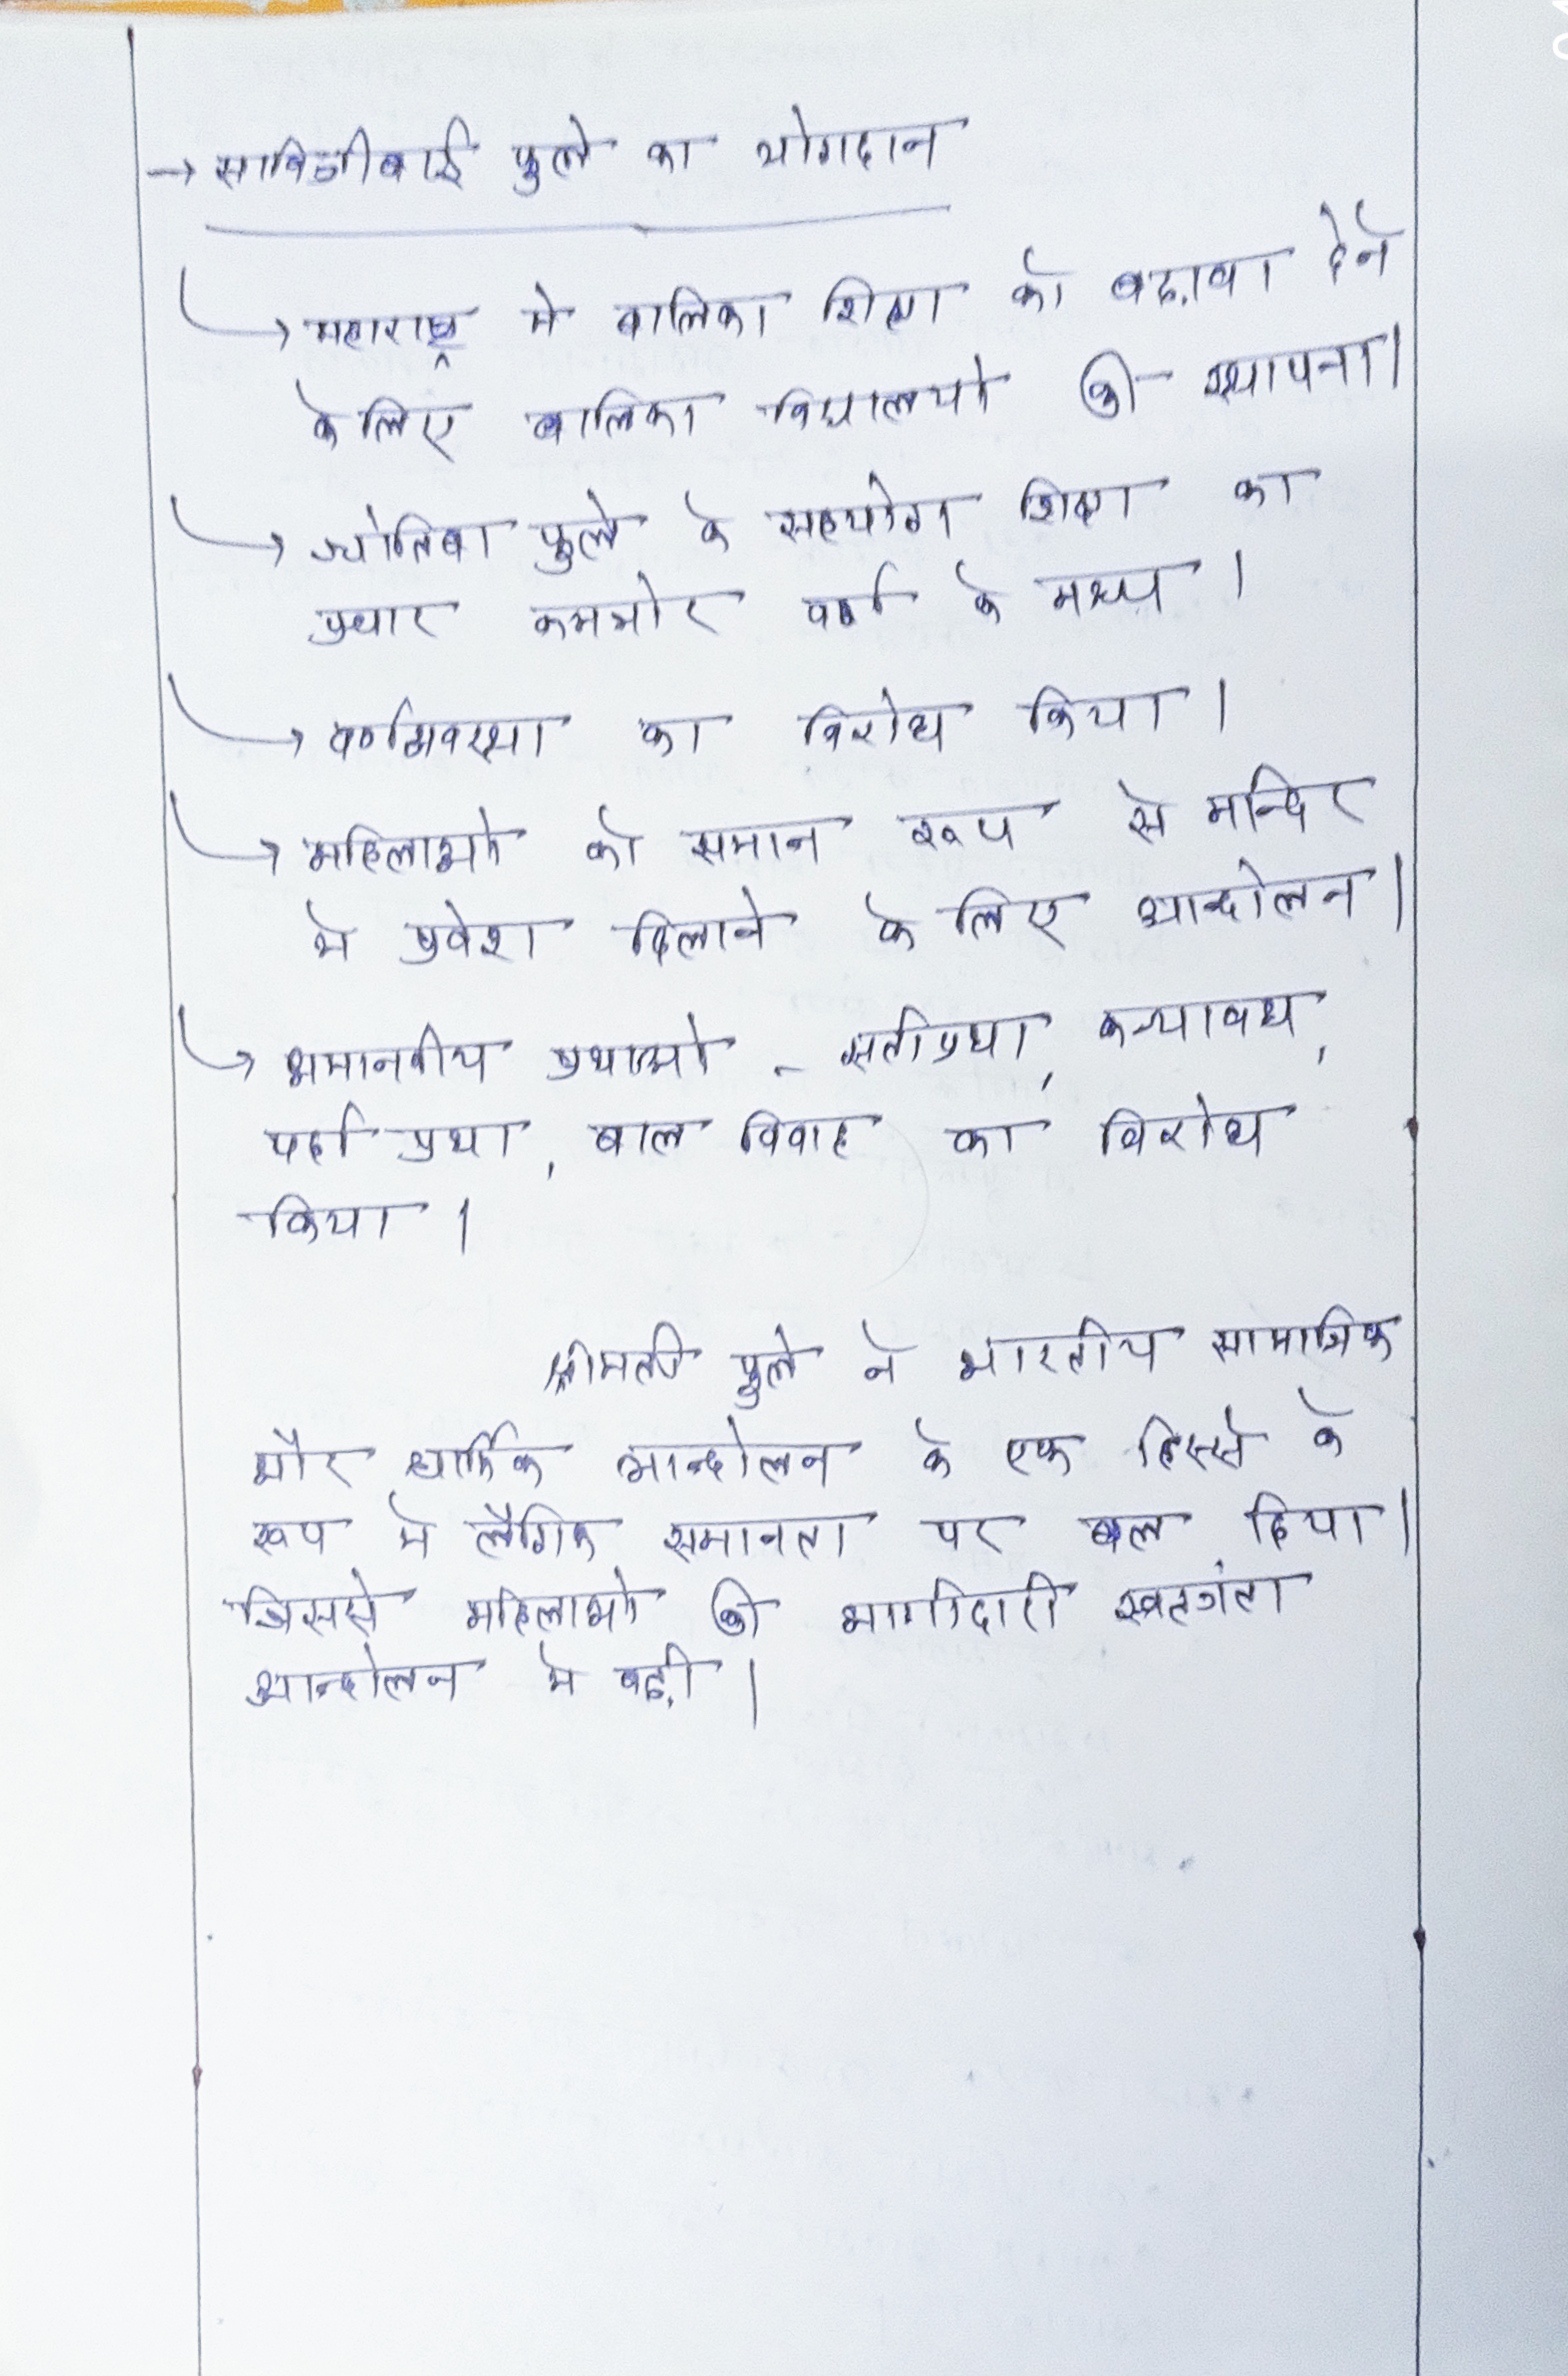 → सावित्रीबाई फुले का योगदान
↳ महाराष्ट्र मे बालिका शिक्षा को बढ़ावा देने
के लिए बालिका विद्यालयो की स्थापना।
↳ ज्योतिबा फुले के सहयोग शिक्षा का
प्रचार कमजोर वर्ग के मध्य ।
↳ वर्णव्यवस्था का विरोध किया ।
↳ महिलाओ को समान रूप से मन्दिर
मे प्रवेश दिलाने के लिए आन्दोलन।
↳ अमानवीय प्रथाओ - सतीप्रथा, कन्यावध,
पर्दा प्रथा, बाल विवाह का विरोध
किया ।
श्रीमती फुले ने भारतीय सामाजिक
और धार्मिक आन्दोलन के एक हिस्से के
रूप मे लैगिक समानता पर बल दिया।
जिससे महिलाओ की भागीदारी स्वतत्रंता
आन्दोलन मे बढ़ी ।